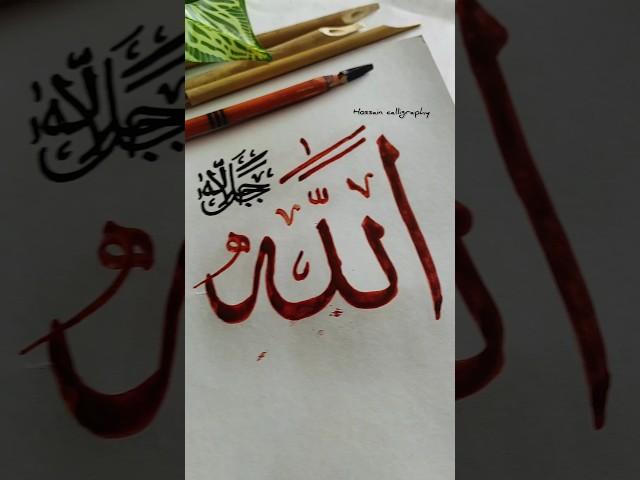 Hossain calligraphy
الله
جل جلاله